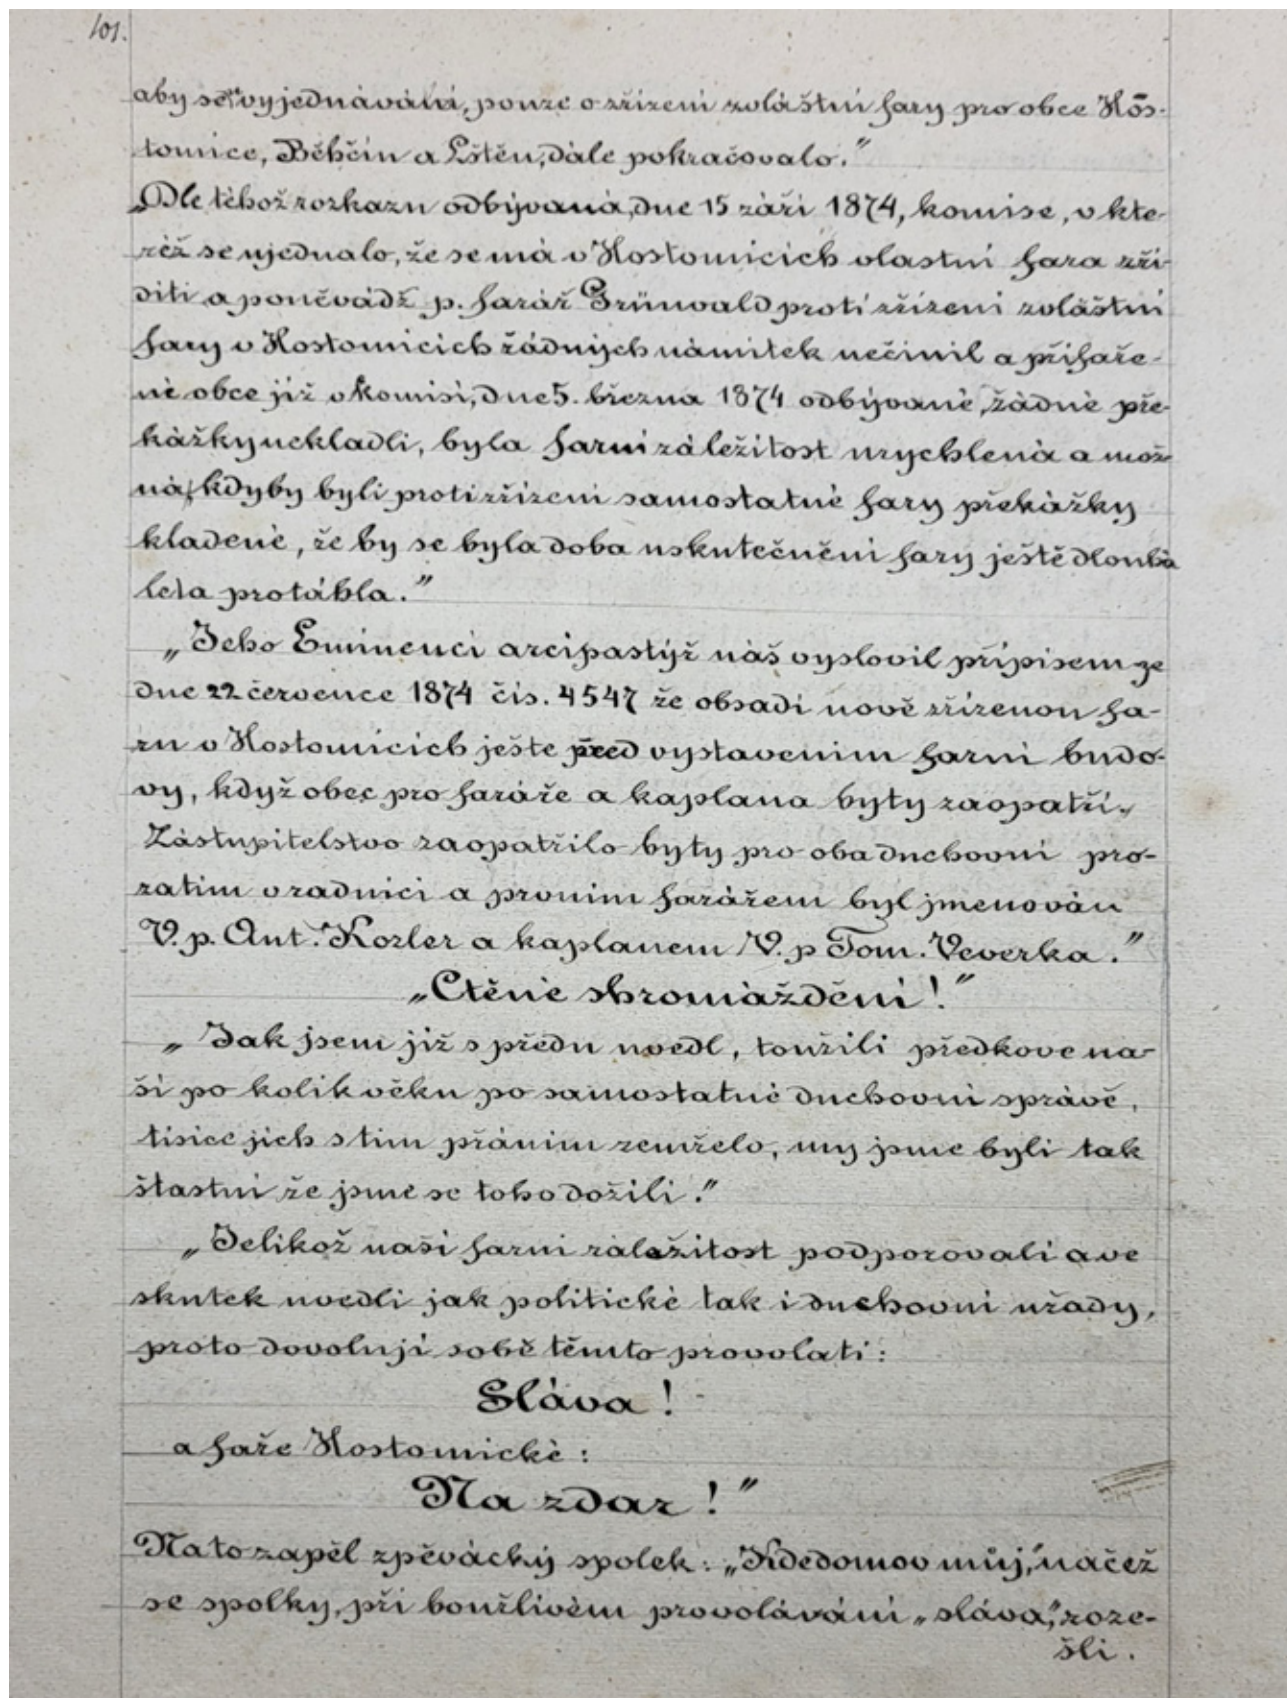 101.
aby se vyjednávání, pouze o zřízení zvláštní fary pro obce Hos-
tomice, Běhčín a Lštěn, dále pokračovalo."
„Dle téhož rozkazu odbývaná, dne 15 září 1874, komise, v kte-
réž se ujednalo, že se má v Hostomicích vlastní fara zří-
diti a poněvádž p. farář Grünwald proti zřízení zvláštní
fary v Hostomicích žádných námitek nečinil a přifaře-
né obce již v komisi, dne 5. března 1874 odbývané, žádné pře-
kážky nekladli, byla farní záležitost urychlená a mož-
ná, kdyby byli proti zřízení samostatné fary překážky
kladené, že by se byla doba uskutečnění fary ještě dlouhá
leta protáhla."
„Jeho Eminencí arcipastýř náš vyslovil přípisem ze
dne 22 července 1874 čís. 4547 že obsadí nově zřízenou fa-
ru v Hostomicích ješte před vystavením farní budo-
vy, když obec pro faráře a kaplana byty zaopatří.
Zástupitelstvo zaopatřilo byty pro oba duchovní pro-
zatím v radnici a prvním farářem byl jmenován
V. p. Ant. Kozler a kaplanem V. p Tom. Veverka."
„Ctěné shromáždění!"
„Jak jsem již s předu uvedl, toužili předkove na-
ši po kolik věku po samostatné duchovní správě,
tisíce jich s tím přáním zemřelo, my jsme byli tak
štastní že jsme se toho dožili."
„Jelikož naši farní záležitost podporovali a ve
skutek uvedli jak politické tak i duchovní úřady,
proto dovoluji sobě těmto provolati:
Sláva!
a faře Hostomické:
Na zdar!"
Na to zapěl zpěvácký spolek: „Kde domov můj," načež
se spolky, při bouřlivém provolávání „sláva," roze-
šli.